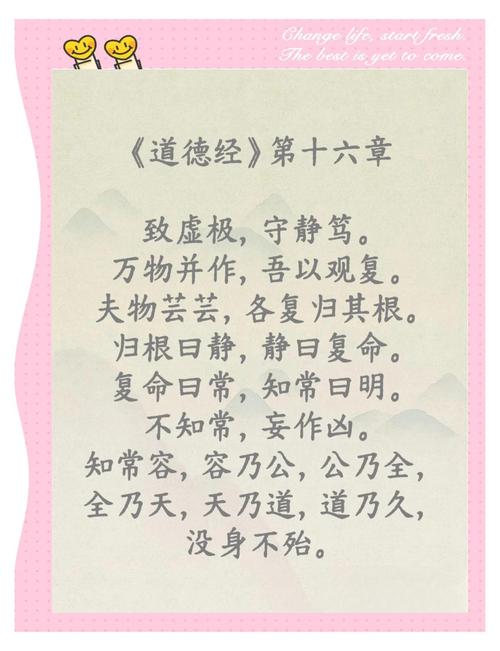 Change life, start fresh.
The best is yet to come.
《道德经》第十六章
致虚极，守静笃。
万物并作，吾以观复。
夫物芸芸，各复归其根。
归根曰静，静曰复命。
复命曰常，知常曰明。
不知常，妄作凶。
知常容，容乃公，公乃全，
全乃天，天乃道，道乃久，
没身不殆。